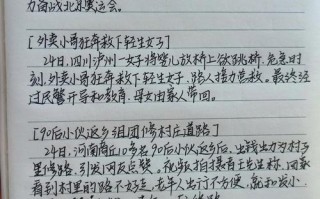 力备战北京奥运会。
[外卖小哥狂奔救下轻生女子]
24日,四川泸州一女子将婴儿放桥上欲跳桥,危急时
刻,外卖小哥狂奔救下轻生女子,路人接力营救。最终经
过民警开导和教育,母女由家人带回。
[90后小伙返乡组团修村庄道路]
24日,河南商丘10多名90后小伙返乡后,出钱出力为村子
里修路,引发网友点赞。视频拍摄者王先生称,因来
看到村里的路不好走,老年人出行不方便,就和发小